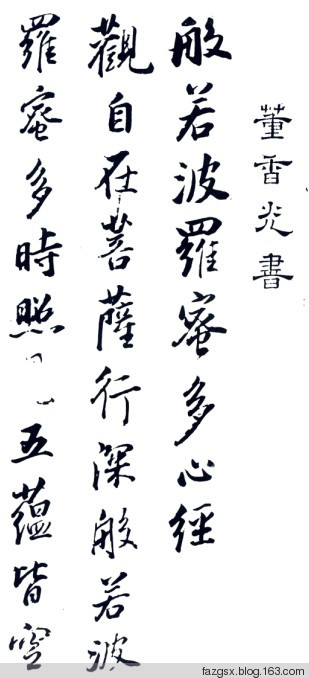 董香光書
般若波羅蜜多心經
觀自在菩薩行深般若波
羅蜜多時照五蘊皆空
fazgsx.blog.163.com